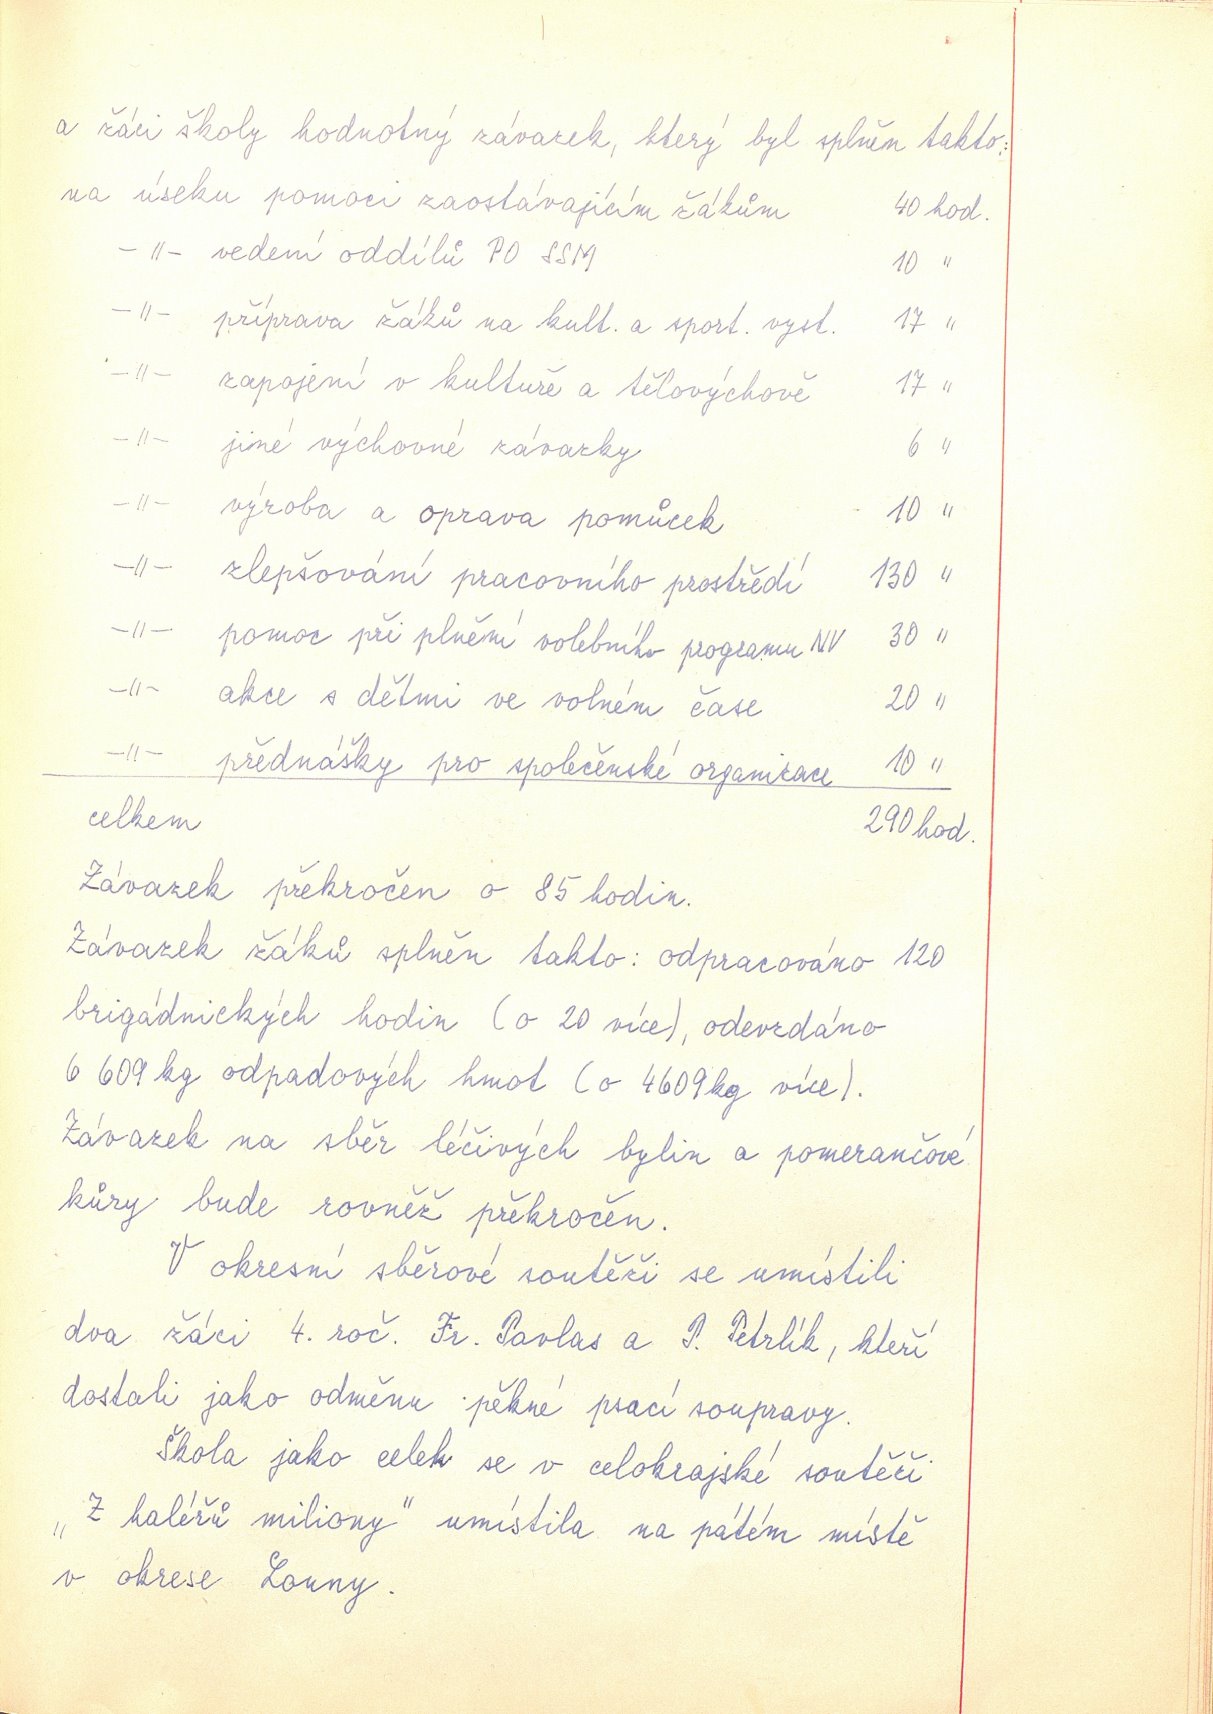 a žáci školy hodnotný závazek, který byl splněn takto:
na úseku pomoci zaostávajícím žákům 40 hod.
–"– vedení oddílů PO SSM 10 "
–"– příprava žáků na kult. a sport. vyst. 17 "
–"– zapojení v kultuře a tělovýchově 17 "
–"– jiné výchovné závazky 6 "
–"– výroba a oprava pomůcek 10 "
–"– zlepšování pracovního prostředí 130 "
–"– pomoc při plnění volebního programu NV 30 "
–"– akce s dětmi ve volném čase 20 "
–"– přednášky pro společenské organizace 10 "
celkem 290 hod.
Závazek překročen o 85 hodin.
Závazek žáků splněn takto: odpracováno 120
brigádnických hodin (o 20 více), odevzdáno
6 609 kg odpadových hmot (o 4609 kg více).
Závazek na sběr léčivých bylin a pomerančové
kůry bude rovněž překročen.
V okresní sběrové soutěži se umístili
dva žáci 4. roč. Fr. Pavlas a P. Petrlík, kteří
dostali jako odměnu pěkné psací soupravy.
Škola jako celek se v celokrajské soutěži
„Z haléřů miliony" umístila na pátém místě
v okrese Louny.